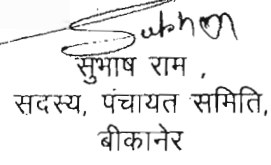 Subhan
सुभाष राम ,
सदस्य, पंचायत समिति,
बीकानेर